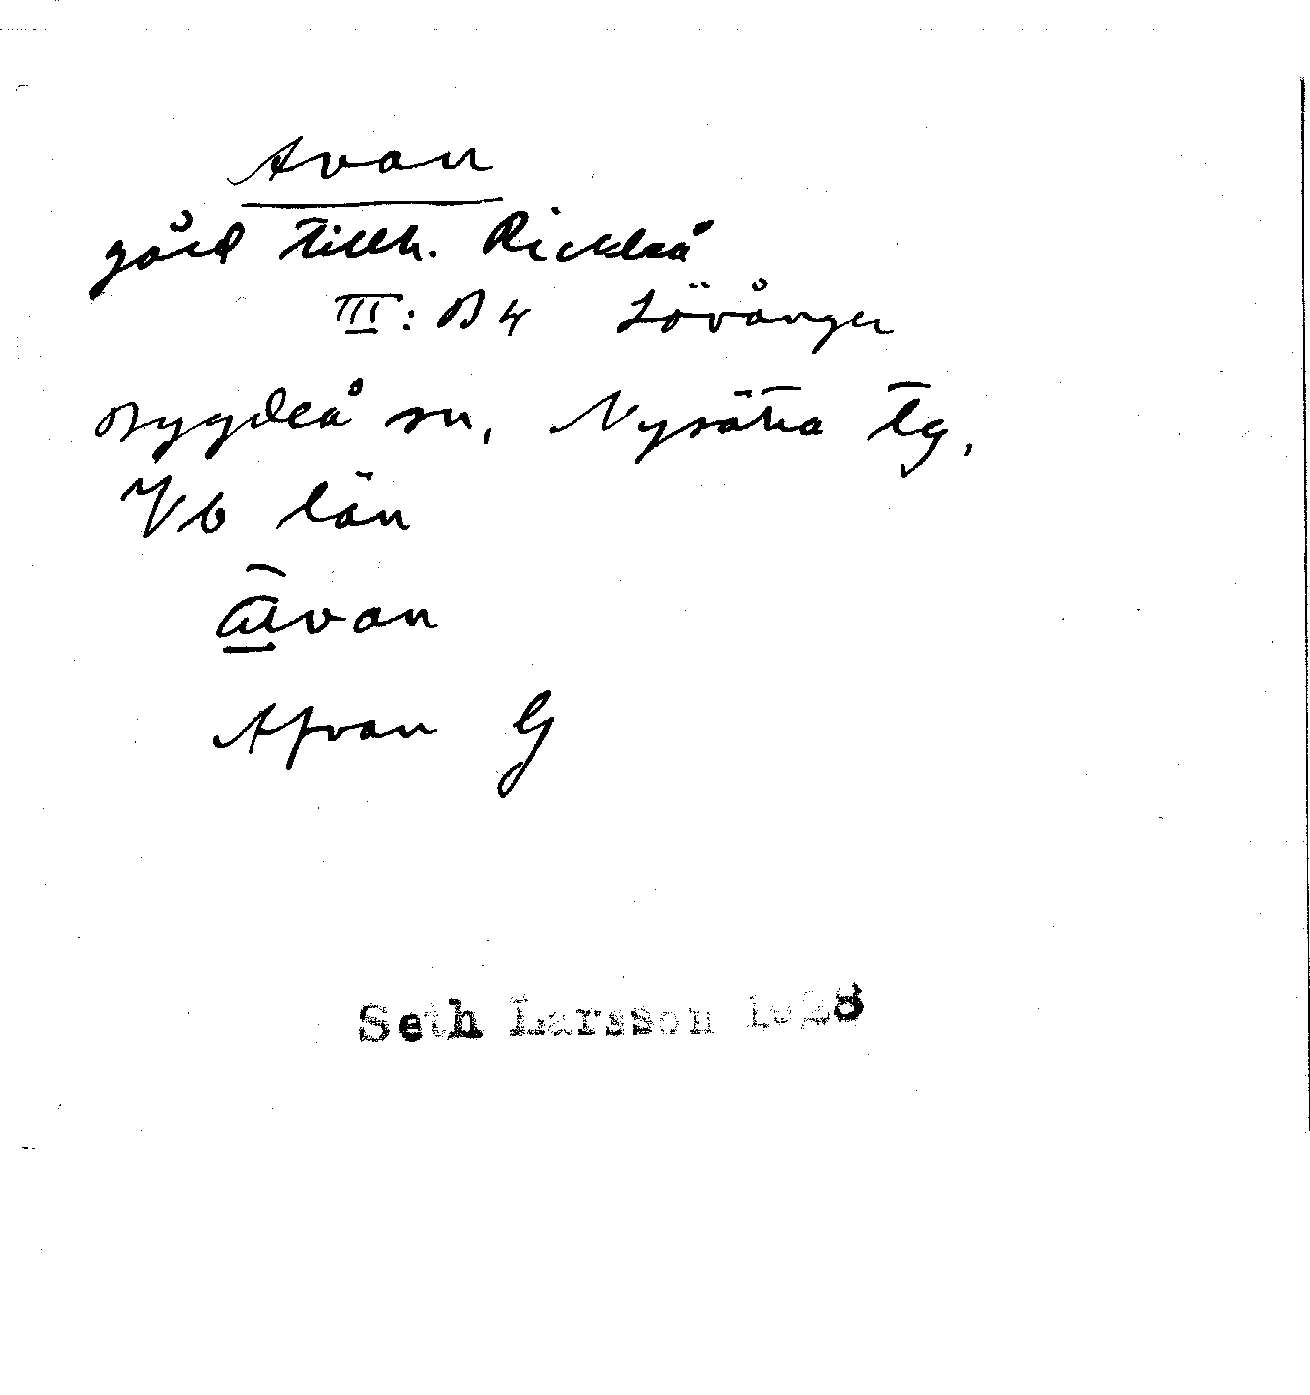 Avan
gård tillh. Rickleå
III: B4 Lövånger
Bygdeå sn, Nysätra tg,
Vb län
Afvan G
Seth Larsson 1928